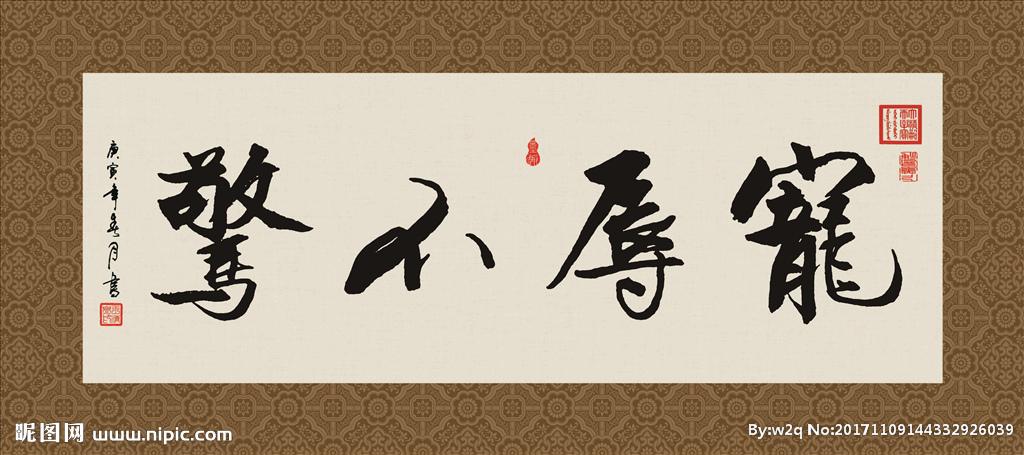 寵辱不驚
庚寅年春月書
昵图网 www.nipic.com
By:w2q No:20171109144332926039